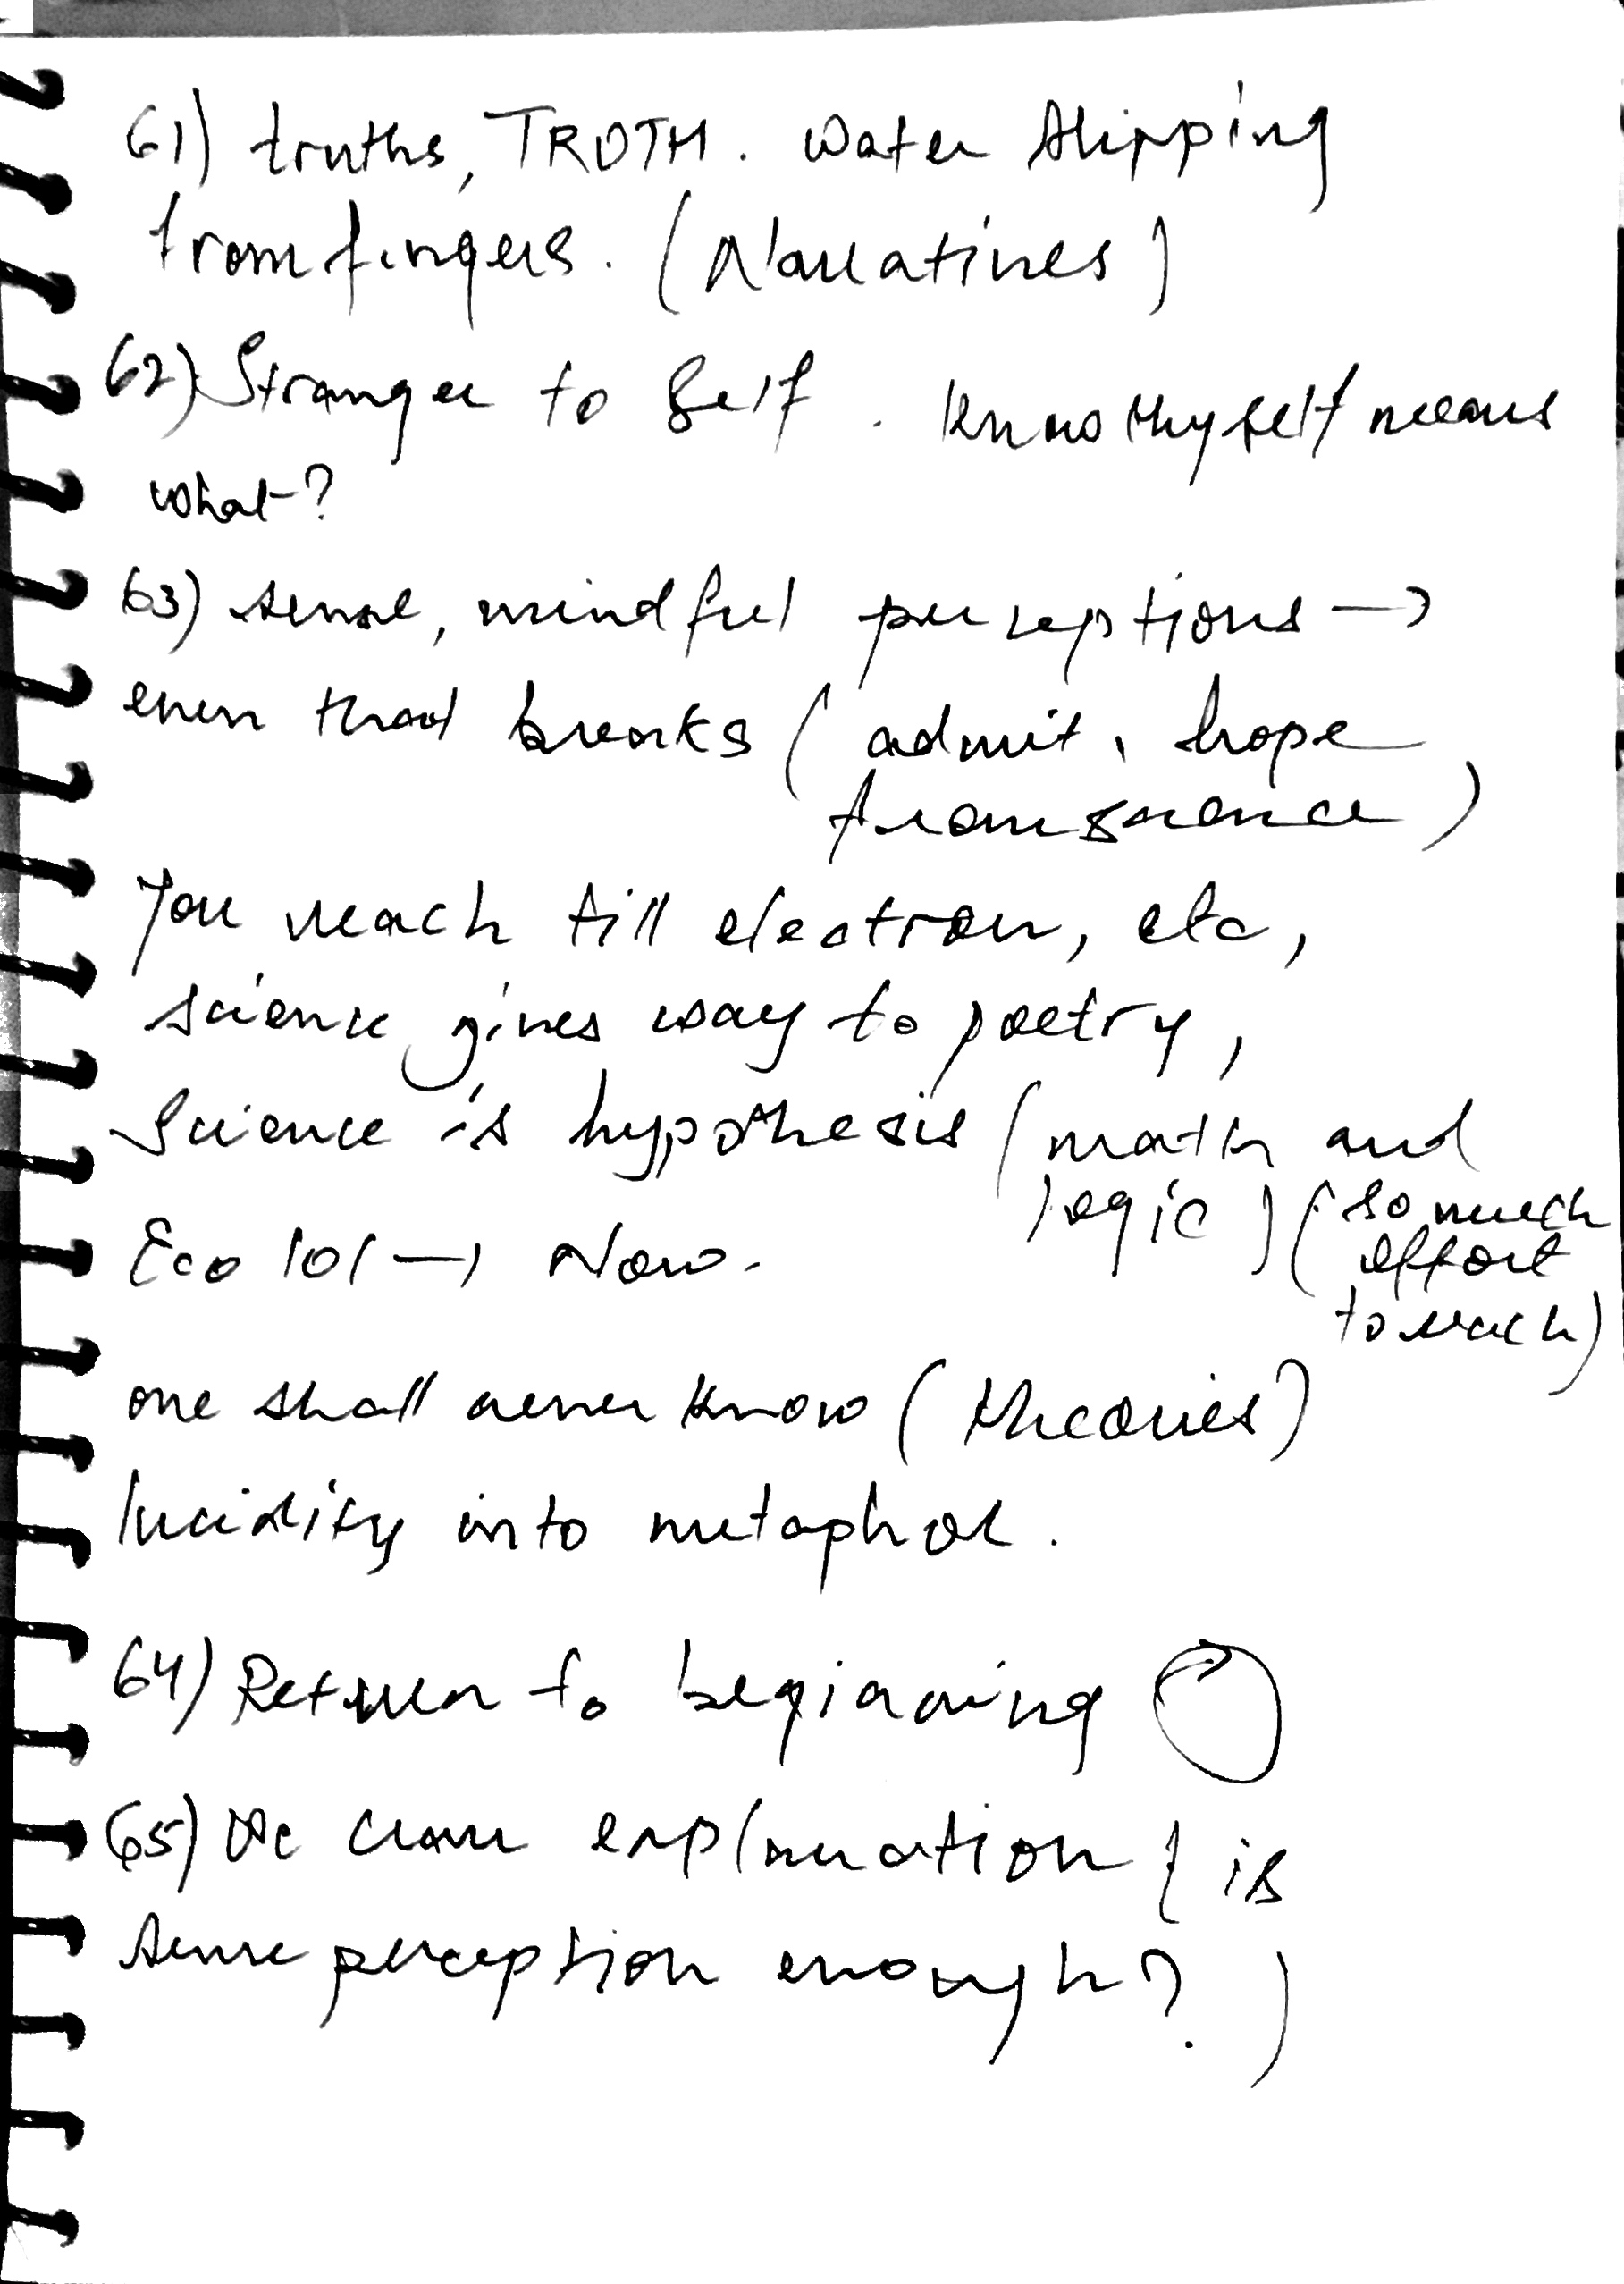 61) truths, TRUTH. Water slipping
from fingers. (Narratives)
62) Stranger to Self. Know thyself means
what?
63) sense, mindful perceptions →
even that breaks (admit, hope
from science)
You reach till electron, etc,
science gives way to poetry,
Science is hypothesis (math and
logic) (so much
effort
to reach)
Eco 101 → Now.
one shall never know (theories)
lucidity into metaphor.
64) Return to beginning
65) We crave explanation (is
sense perception enough?)